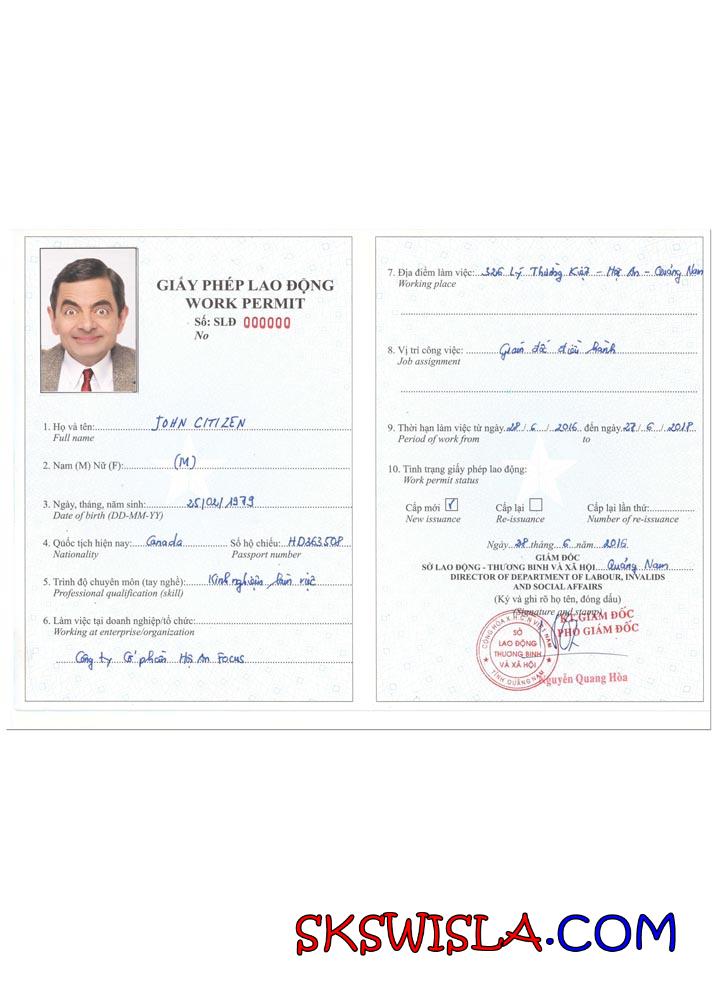 GIẤY PHÉP LAO ĐỘNG
WORK PERMIT
Số: SLĐ 000000
No
1. Họ và tên: JOHN CITIZEN
Full name
2. Nam (M) Nữ (F): (M)
3. Ngày, tháng, năm sinh: 25/02/1979
Date of birth (DD-MM-YY)
4. Quốc tịch hiện nay: Canada Số hộ chiếu: HD363508
Nationality Passport number
5. Trình độ chuyên môn (tay nghề): Kinh nghiệm làm việc
Professional qualification (skill)
6. Làm việc tại doanh nghiệp/tổ chức:
Working at enterprise/organization
Công ty Cổ phần Hội An Focus
7. Địa điểm làm việc: 326 Lý Thường Kiệt - Hội An - Quảng Nam
Working place
8. Vị trí công việc: Giám đốc điều hành
Job assignment
9. Thời hạn làm việc từ ngày 28/6/2016 đến ngày 27/6/2018
Period of work from to
10. Tình trạng giấy phép lao động:
Work permit status
Cấp mới ✓ Cấp lại Cấp lại lần thứ:
New issuance Re-issuance Number of re-issuance
Ngày 28 tháng 6 năm 2016
GIÁM ĐỐC
SỞ LAO ĐỘNG - THƯƠNG BINH VÀ XÃ HỘI Quảng Nam
DIRECTOR OF DEPARTMENT OF LABOUR, INVALIDS
AND SOCIAL AFFAIRS
(Ký và ghi rõ họ tên, đóng dấu)
(Signature and stamp)
KT.GIÁM ĐỐC
PHÓ GIÁM ĐỐC
CỘNG HÒA X.H.C.N VIỆT NAM
SỞ
LAO ĐỘNG
THƯƠNG BINH
VÀ XÃ HỘI
TỈNH QUẢNG NAM
Nguyễn Quang Hòa
SKSWISLA.COM